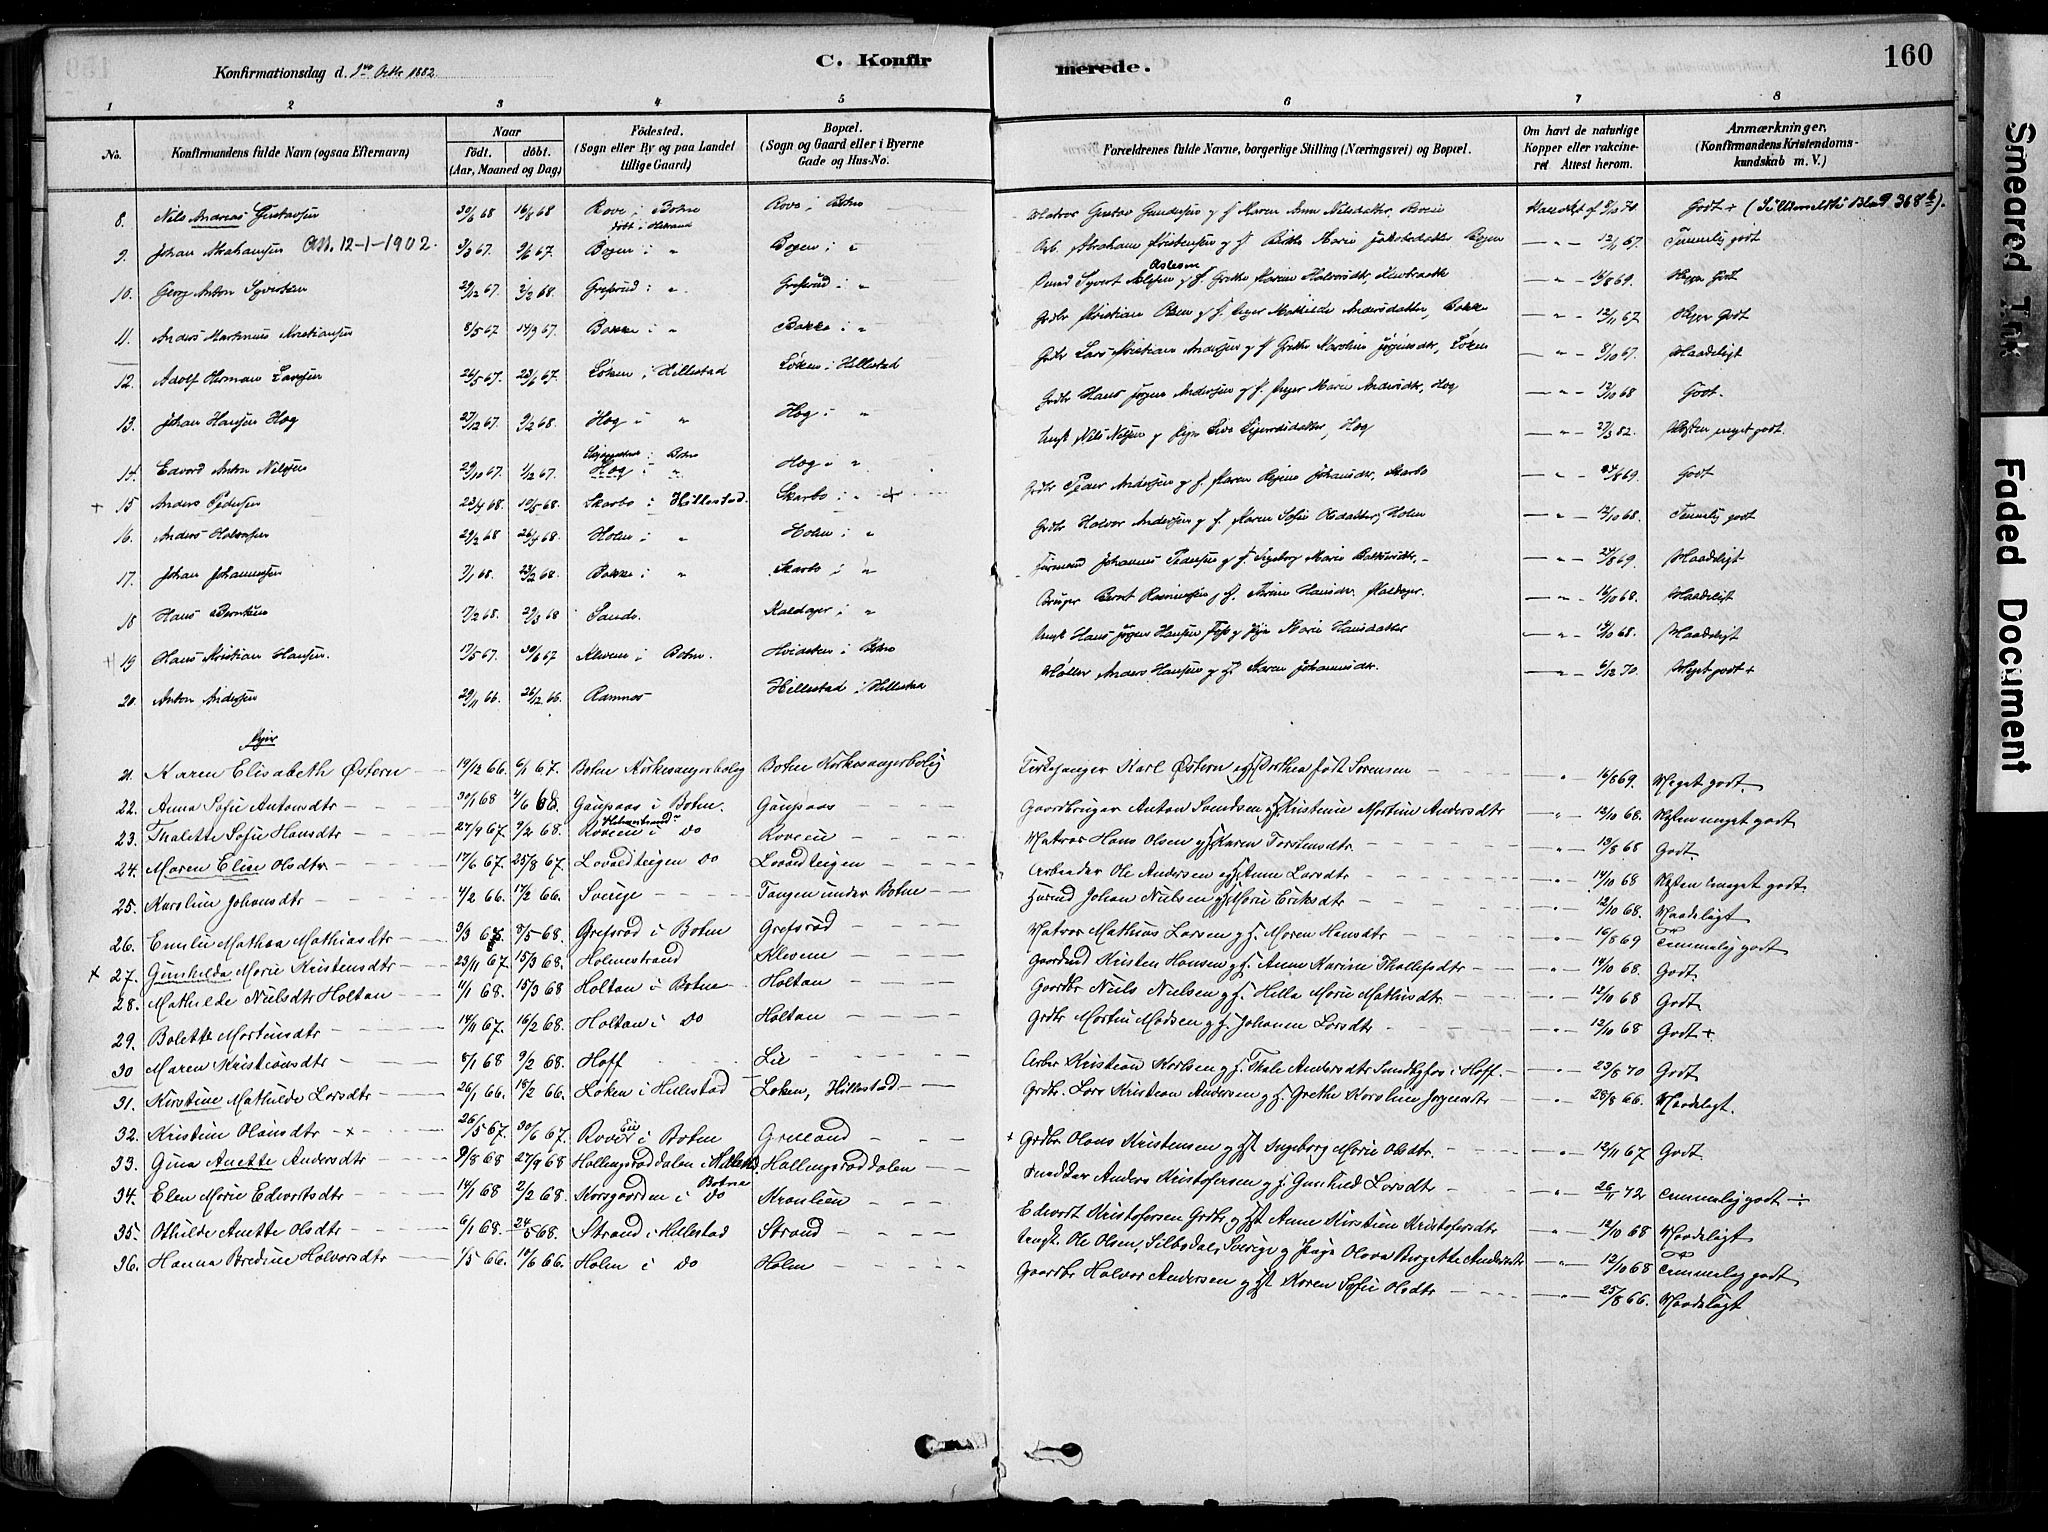 160
Konfirmationsdag d. 1ste Octbr 1882
C. Konfirmerede.
1 2 3 4 5 6 7 8
No.
Konfirmandens fulde Navn (ogsaa Efternavn)
Naar
födt. döbt.
(Aar, Maaned og Dag)
Födested.
(Sogn eller By og paa Landet tillige Gaard)
Bopæl.
(Sogn og Gaard eller i Byerne Gade og Hus-No.
Forældrenes fulde Navne, borgerlige Stilling (Næringsvei) og Bopæl.
Om havt de naturlige Kopper eller vakcineret Attest herom.
Anmærkninger, (Konfirmandens Kristendomskundskab m. V.)
8. Nils Andreas Gustavsen 30/6 68 16/8 68 Rove i Botne Rove i Botne Matros Gustav Gundersen g f Maren Anne Nilsdatter, Rove Godt +
9. Johan Abrahamsen Ott. 12-1-1902. 3/3 67. 9/6 67. Bogen i " Bogen i " Arb. Abraham Kristensen g f Birthe Marie Jakobsdatter Bogen — " — 12/11 67. Temmelig godt
10. Georg Anton Syvertsen 29/12 67. 2/2 68. Grefsrud i " Grefsrud i " — " — 16/8 69. Meget Godt
11. Anders Martinius Kristiansen 8/5 67 14/9 67. Bakke i " Bakke i " Grdbr Kristian Olsen g f Inger Mathilde Andersdatter, Bakke — " — 12/11 67 Meget Godt
12. Adolf Herman Larssen 26/5 67. 23/6 67. Løken i Hillestad Løken i Hillestad Grdbr Lars Kristian Andersen g f Grethe Karoline Jørgensdtr, Løken — " — 8/10 67. Maadeligt
13. Johan Hansen Hog 27/12 67. 9/2 68. Hog i " Hog i " Grdbr Hans Jørgen Andersen g f. Inger Marie Andersdtr, Hog — " — 12/10 68 Godt.
14. Edvard Anton Nilssen 29/10 67. 1/12 67. Hog i " Hog i " Ungk Nils Nilsen g Pige Live Sigurdsdatter, Hog — " — 27/3 82. Næsten meget godt.
+ 15 Anders Pedersen 23/4 68. 10/5 68. Skarbo i Hillestad. Skarbo i " + Grdbr Peder Andersen g f. Karen Regine Johansdtr, Skarbo — " — 24/8 69. Godt
16. Anders Halvorsen 29/2 68 26/4 68. Holm i " Holm i " Grdbr Halvor Andersen g f. Karen Sofie Olsdatter, Holm — " — 12/10 68. Temmelig godt
17. Johan Johannessen 7/1 68. 23/2 68. Bakke i " Skarbo i " Johannes Pedersen g f Ingeborg Marie — " — 24/8 69. Maadeligt
18 Hans Berntsen 17/2 68. 29/3 68 Sande. Kaldager i " Bruger Bernt Rasmussen g f. Hansdtr Kaldager. — " — 16/10 68. Maadeligt
+ 19 Hans Kristian Hansen. 17/5 67. 30/6 67 Kleven i Botne. Hvidsten i Botne Ungk Hans Jørgen Hansen g Pige Marie Hansdatter — " — 14/10 68. Maadeligt
20. Anton Andersen 29/11 66. 26/12 66. Ramnæs Hillestad i Hillestad Møller Anders Hansen g f. Karen Johannesdtr. — " — 6/12 70. Meget godt +
Piger
21. Karen Elisabeth Østern 19/12 66. 6/1 67. Botne Kirkesangerbolig Botne Kirkesangerbolig Kirkesanger Karl Østern g f Dorthea født Sørensen " 16/8 69. Meget godt.
22. Anna Sofie Antonsdtr 30/1 68 4/6 68. Gaupaas i Botne. Gaupaas Gaardbruger Anton Samdsen g f Kristine Martine Andersdtr " 12/10 68. Næsten meget godt
23. Thalette Sofie Hansdtr 27/9 67. 9/2 68. Roveen i do Holmestrand Roveen Matros Hans Olsen g f Karen Torstensdtr. " 13/8 68 Godt.
24. Maren Elise Olsdtr 17/6 67. 25/8 67. Lovaldteigen do Lovaldteigen Arbeider Ole Andersen g f Anne Larsdtr " 14/10 68 Næsten meget godt
25. Karoline Johansdtr 4/2 66. 17/2 66. Sverige Tangen under Botne Husmd Johan Nielsen g f Marie Eriksdtr " 12/10 68. Maadeligt
26. Emilie Mathea Mathiasdtr 3/3 67 8/5 68. Grefsrød i Botne Grefsrød Matros Mathias Larsen g f. Maren Hansdtr " 16/8 69 Temmelig godt
+ 27. Gunhilda Marie Kristensdtr 23/11 67. 15/3 68. Holmestrand Kleven Gaardmd Kristen Hansen g f. Anne Karine Thollefsdtr " 14/10 68. Godt
28. Mathilde Nielsdtr Holtan 11/1 68. 15/3 68 Holtan i Botne Holtan Gaardbr Niels Nielsen g f. Hilla Marie Mathisdtr " 12/10 68 Godt
29. Bolette Martinsdtr 14/11 67. 16/2 68. Holtan i do Holtan Grdbr Martin Madsen g f. Johanne Larsdtr " 12/10 68 Godt +
30 Maren Kristiansdtr 8/1 68 9/2 68. Hoff Lie Arbr Kristian Karlsen g f. Thale Andersdtr Sundbyfos i Hoff. — " — 23/8 70 Godt
31. Kirstine Mathilde Larsdtr 26/1 66. 18/2 66. Løken i Hillestad Løken, Hillestad Grdbr. Lars Kristian Andersen g f. Grethe Karoline Jørgensdtr — " — 28/8 66. Maadeligt.
32. Kristine Olausdtr + 26/5 67. 30/6 67. Roveen i Botne Grelland + Grdbr Olaus Kristensen g Hst Ingeborg Marie Olsdtr. — " — 12/11 67 Godt
33. Gina Anette Andersdtr 9/8 68 27/9 68 Hallingsrøddalen i Hillestd. Hallingsrøddalen Anders Kristofersen g f. Gunhild Larsdtr " 26/11 72 Temmelig godt ÷
34. Elen Marie Edvartsdtr 14/1 68 2/2 68. Korsgaarden i do Botne Kronlien Edvart Kristofersen Grdbr g Hst Anne Kirstine Kristofersdtr " 12/10 68 Maadeligt
35. Othilde Anette Olsdtr 6/1 68. 24/5 68. Strand i Hillestad Strand Ungk. Ole Olsen, Silbodal, Sverige g Pige Olava Bergette Andersdtr — " — 12/10 68 Temmelig godt
36. Hanna Bredine Halvorsdtr 1/5 66. 10/6 66. Holm i do Holm Gaardbr Halvor Andersen g Hst Karen Sofie Olsdtr — " — 25/8 66. Maadeligt
Smeared Ink
Faded Document